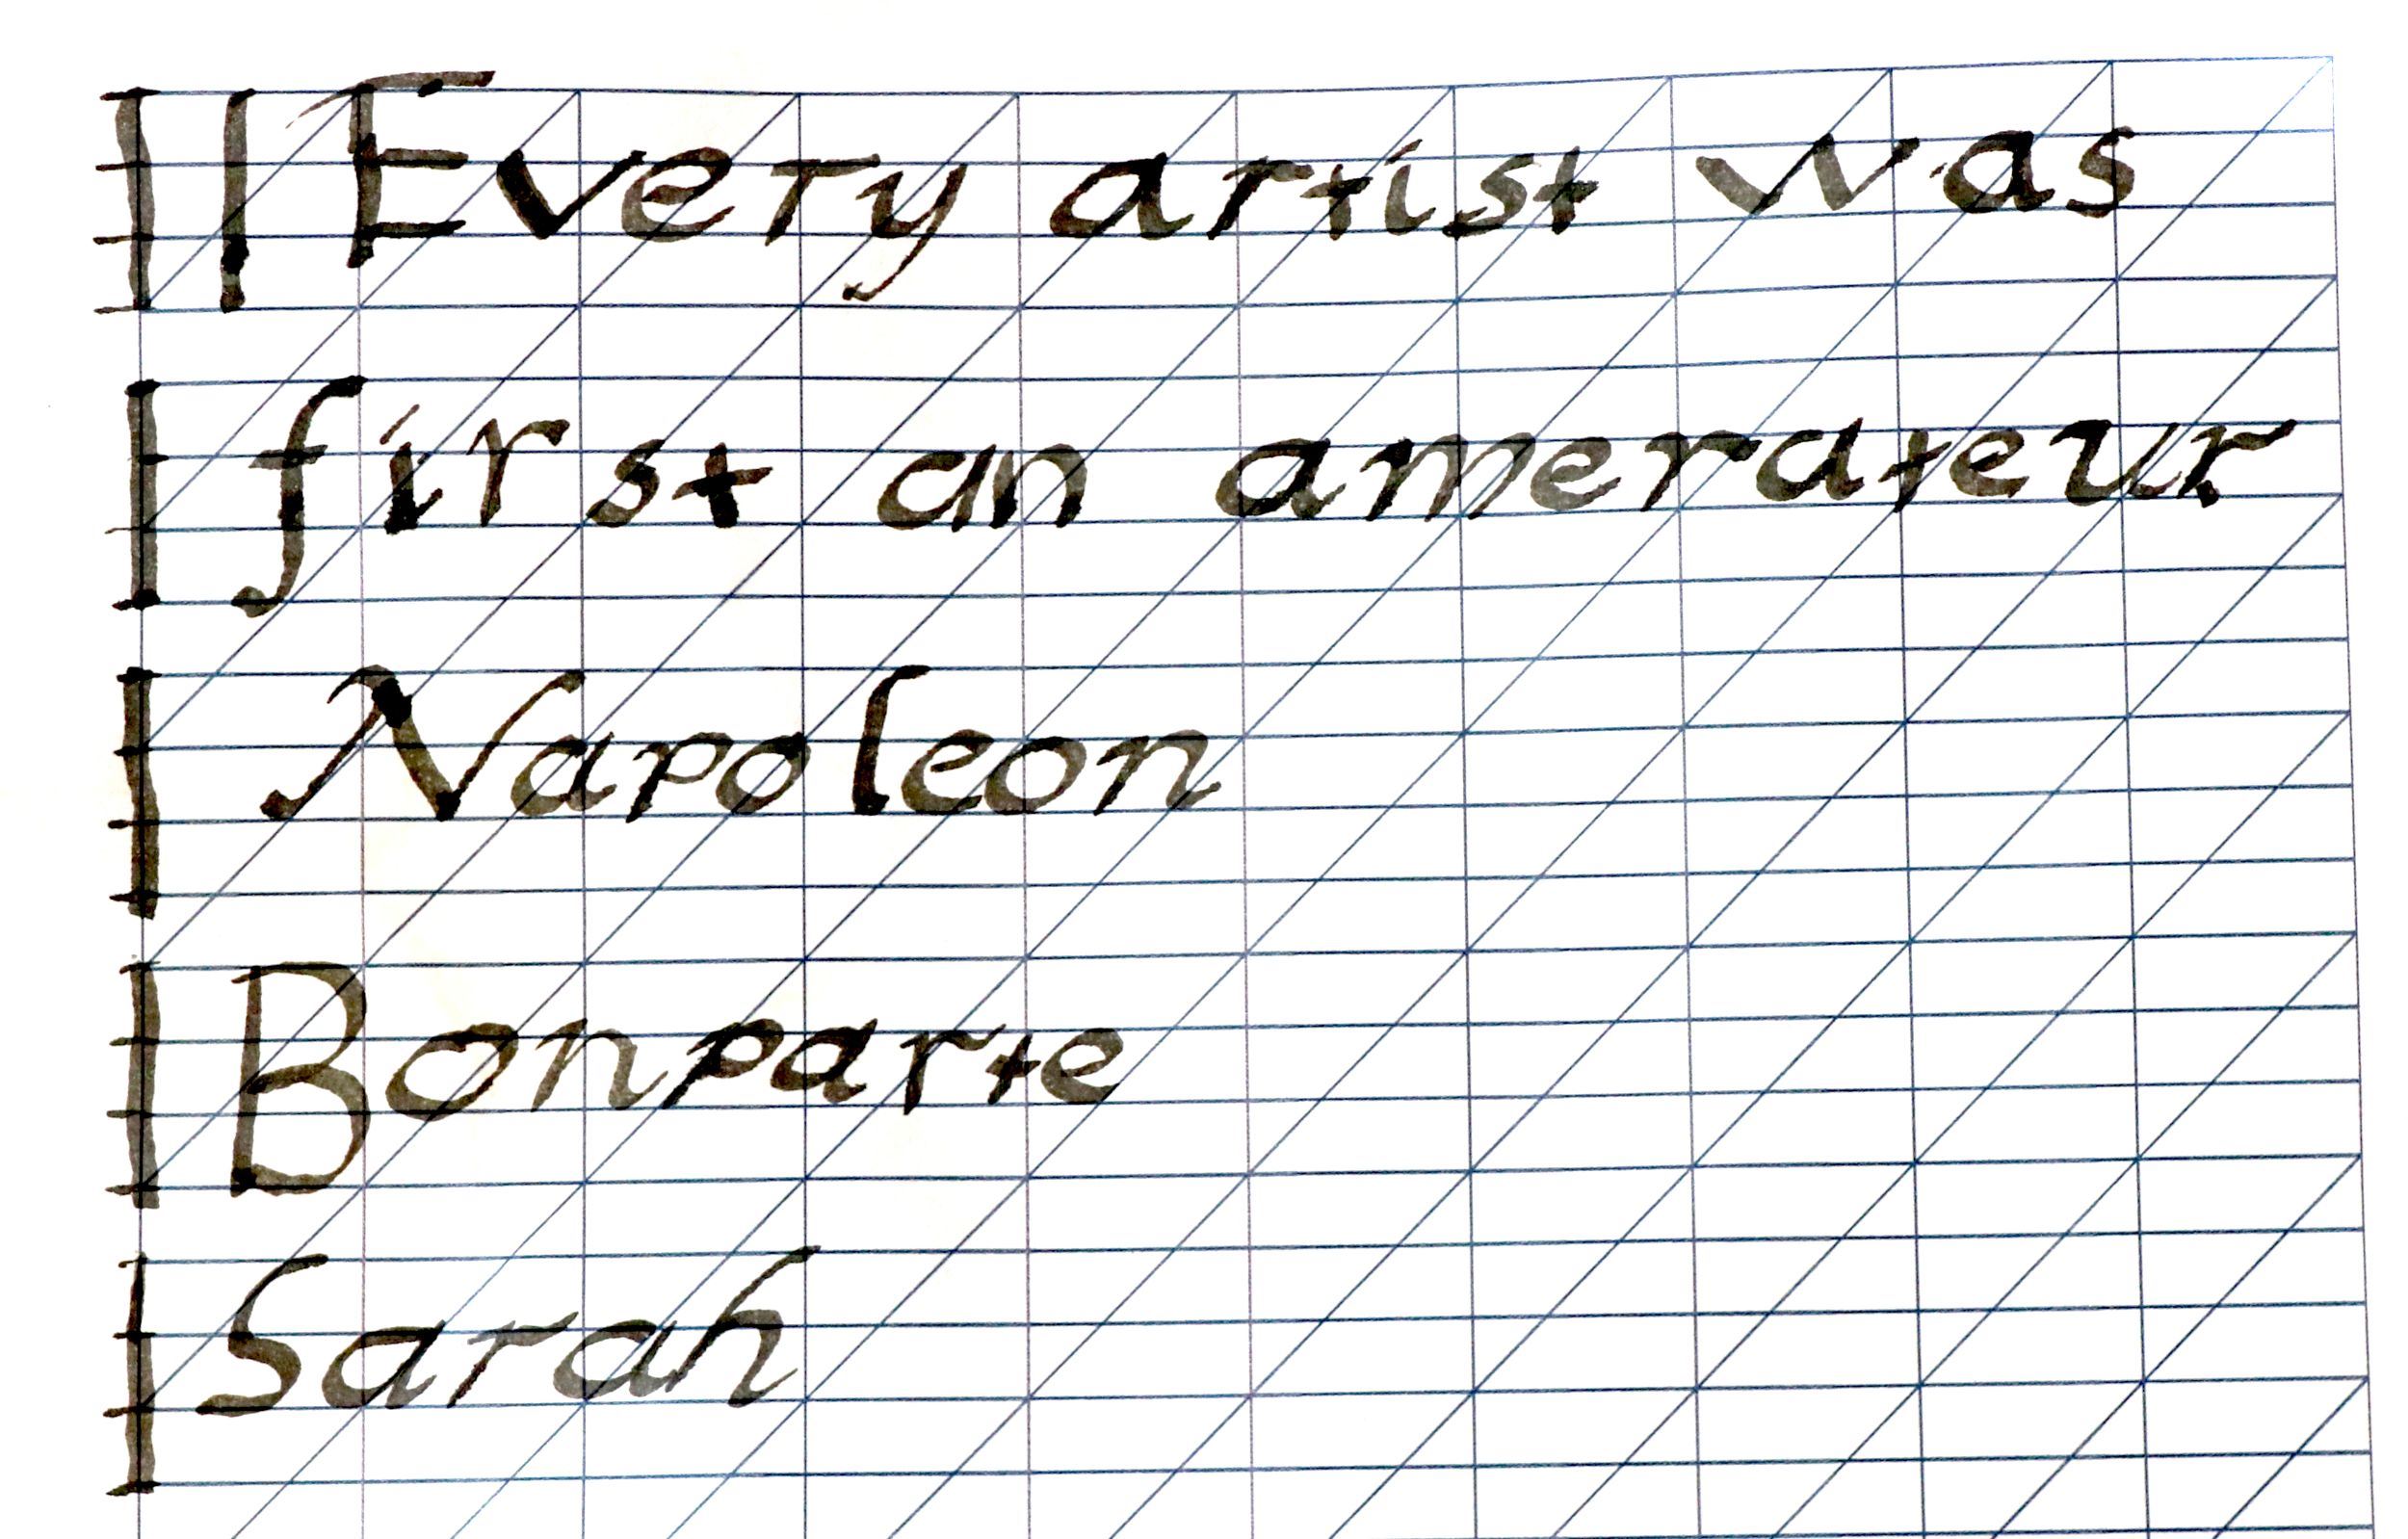 Every artist was
first an amerateur
Napoleon
Bonparte
Sarah